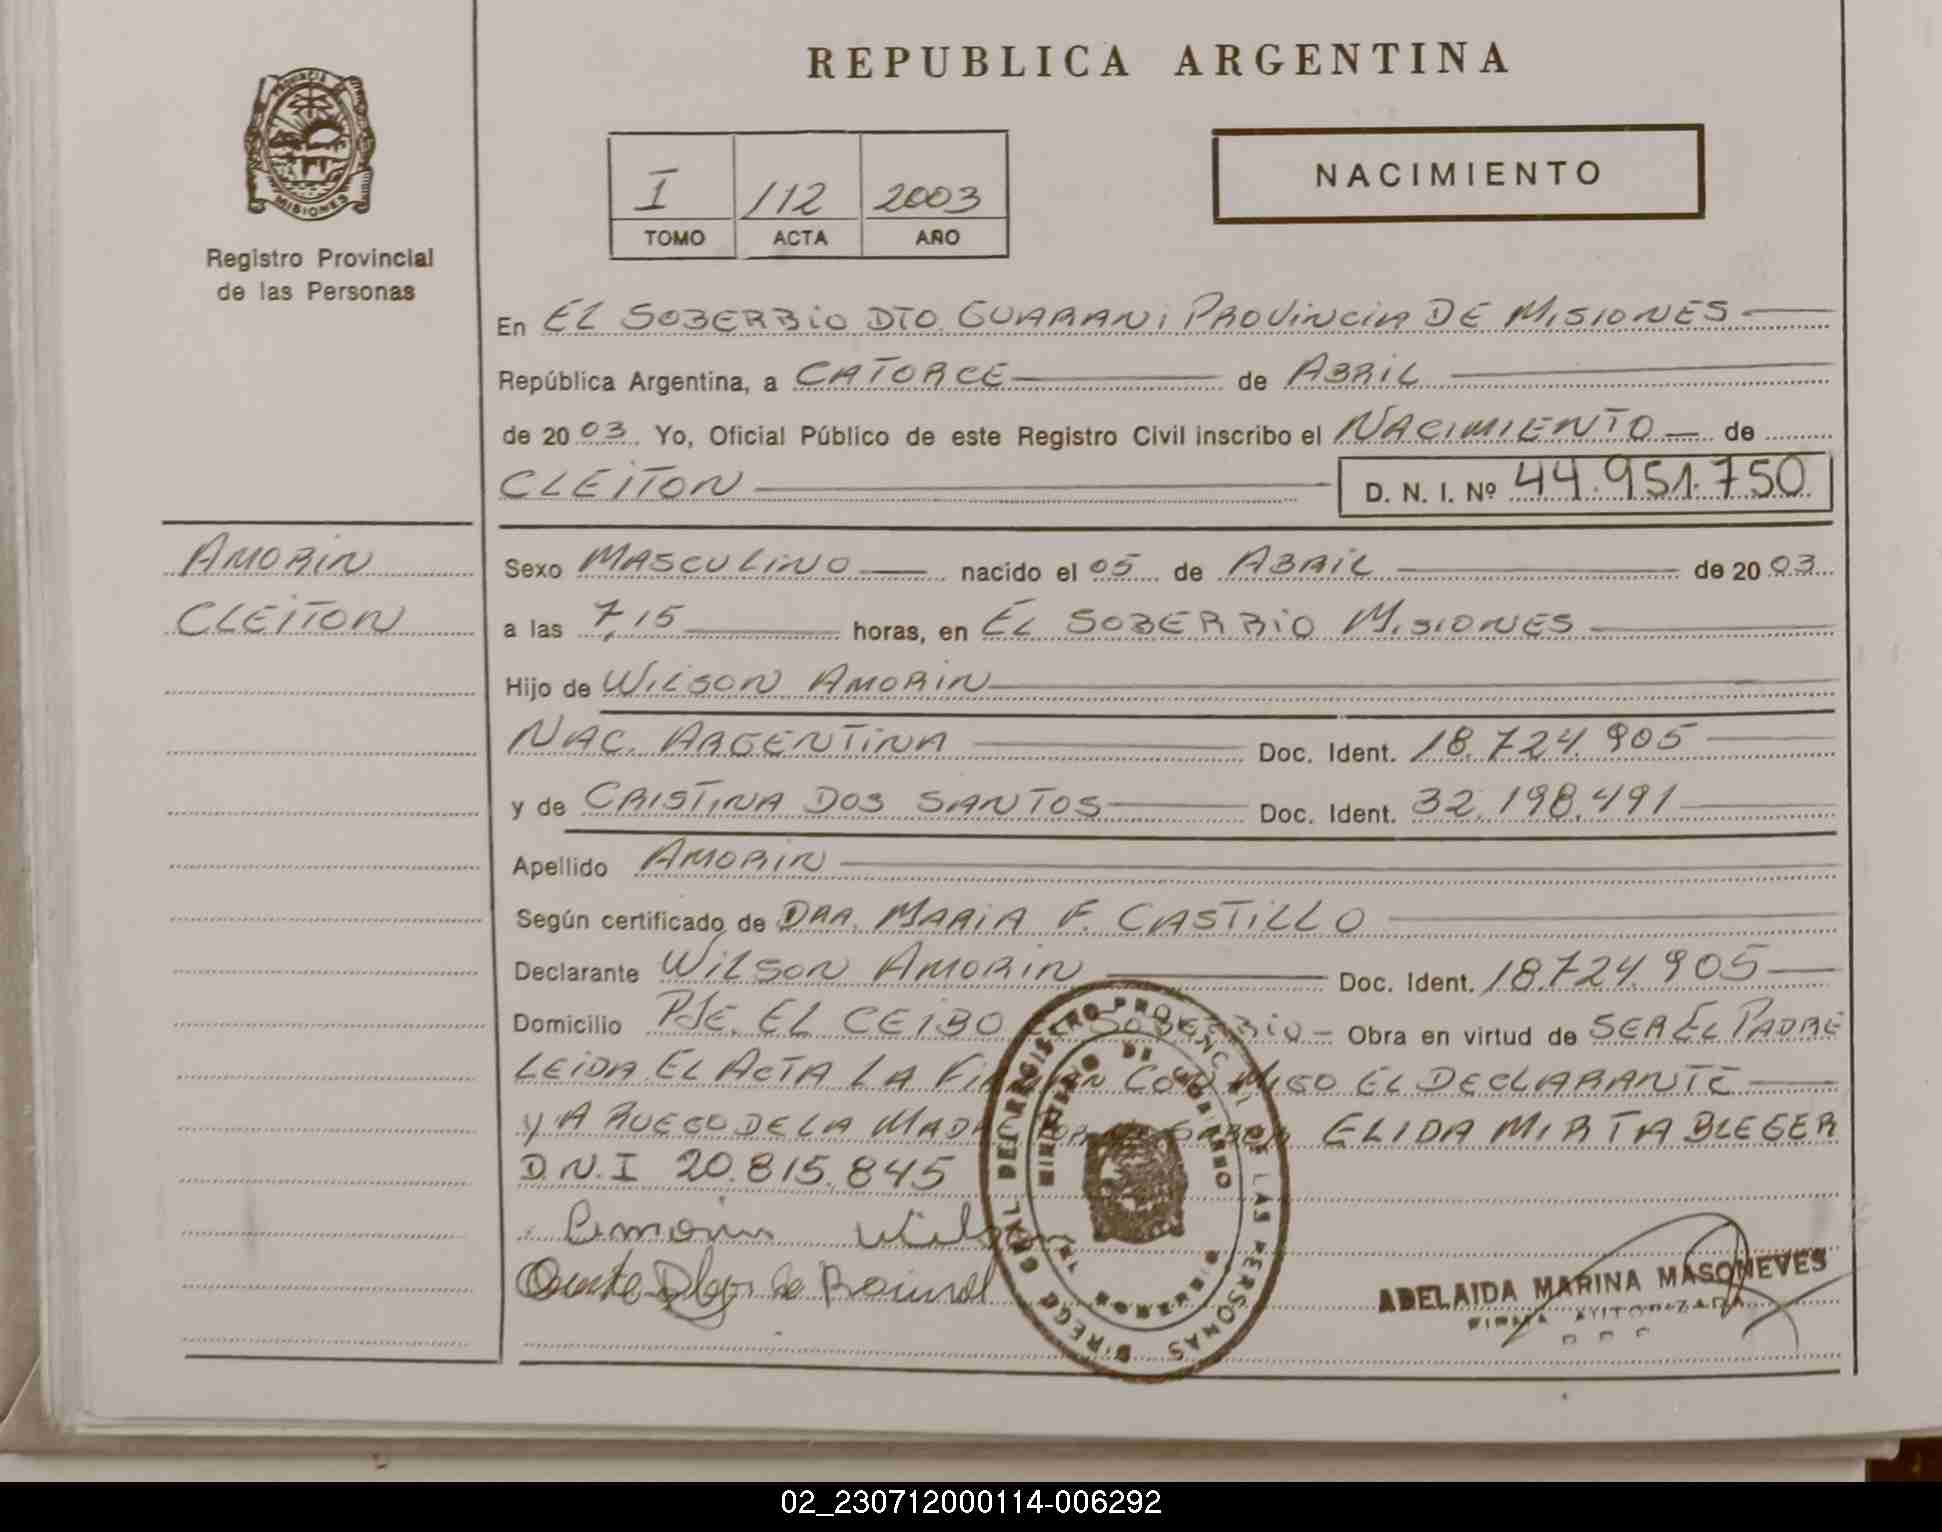 REPUBLICA ARGENTINA
PROVINCIA DE
MISIONES
Registro Provincial
de las Personas
I /112 2003
TOMO ACTA AÑO
NACIMIENTO
En EL SOBERBIO DTO. GUARANI PROVINCIA DE MISIONES
República Argentina, a CATORCE de ABRIL
de 2003. Yo, Oficial Público de este Registro Civil inscribo el NACIMIENTO de
CLEITON D. N. I. Nº 44.951.750
AMORIN
CLEITON
Sexo MASCULINO nacido el 05 de ABRIL de 2003
a las 7,15 horas, en EL SOBERBIO MISIONES
Hijo de WILSON AMORIN
NAC. ARGENTINA Doc. Ident. 18.724.905
y de CRISTINA DOS SANTOS Doc. Ident. 32.198.491
Apellido AMORIN
Según certificado de DRA. MARIA F. CASTILLO
Declarante WILSON AMORIN Doc. Ident. 18.724.905
Domicilio PJE. EL CEIBO SOBERBIO Obra en virtud de SER EL PADRE
LEIDA EL ACTA LA FIRMAN CONMIGO EL DECLARANTE
Y A RUEGO DE LA MADRE ELIDA MIRTA BLEGER
D.N.I 20.815.845
Amorin Wilson
DIREC. GRAL DEL REGISTRO PROVINCIAL DE LAS PERSONAS
MINISTERIO DE GOBIERNO
ADELAIDA MARINA MASONEVES
FIRMA AUTORIZADA
02_230712000114-006292